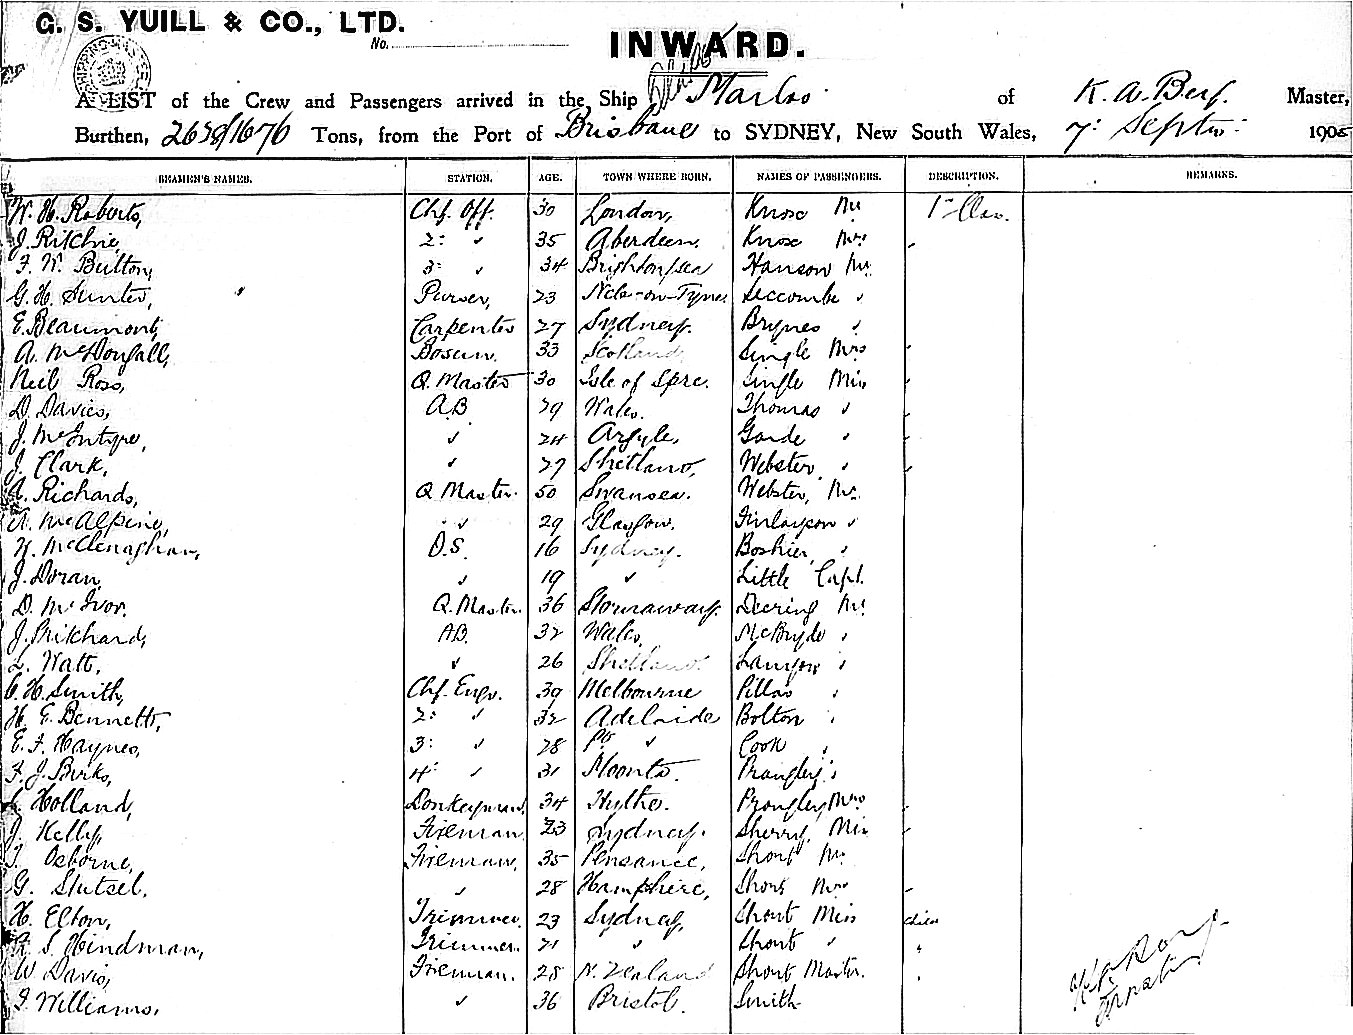 G. S. YUILL & CO., LTD.
No.
INWARD.
A LIST of the Crew and Passengers arrived in the Ship Marloo of K. A. Berg. Master,
Burthen, 2628/1676 Tons, from the Port of Brisbane to SYDNEY, New South Wales, 7: Septr: 1905
SEAMEN'S NAMES. STATION. AGE. TOWN WHERE BORN. NAMES OF PASSENGERS. DESCRIPTION. REMARKS.
W. H. Roberts, Chf. Off. 30 London, Knox Mr 1st Clas.
J. Ritchie, 2: " 35 Aberdeen, Knox Mrs "
F. W. Bulton, 3: " 34 Brighton/sea Hanson Mr.
G. H. Sunter, Purser, 23 Nele-on-Tyne, Seccombe "
E. Beaumont, Carpenter 27 Sydney. Brynes "
A. McDougall, Bosun. 33 Scotland, Single Mrs "
Neil Ross, Q. Master 30 Isle of Spre. Single Miss "
D. Davies, AB 29 Wales. Thomas " "
J. McIntyre, " 24 Argyle, Garde " "
J. Clark, " 27 Shetland, Webster " "
A. Richards, Q Master. 50 Swansea. Webster, Mr.
A. McAlpine, " " 29 Glasgow, Finlayson "
H. McClenaghan, D.S. 16 Sydney. Boshier, "
J. Doran, " 19 " Little Capt.
D. McIvor. Q. Master. 36 Stornaway. Deering Mr
J. Prichard, AB. 32 Wales, McBryde "
L. Watt, " 26 Shetland. Lamrow "
C. H. Smith, Chf. Engr. 39 Melbourne Pillar "
H. E. Bennetts, 2: " 32 Adelaide Bolton "
E. F. Haynes, 3: " 28 Pt " Cook "
F. J. Birks, 4: " 31 Moonta. Prangley "
Holland, Donkeyman, 34 Hythe. Prangley Mrs "
J. Kelly, Fireman. 23 Sydney. Sherry, Miss "
T. Osborne, Fireman, 35 Pensance, Short Mr.
G. Stutsel. " 28 Hampshire, Short Mrs "
H. Elton, Trimmer. 23 Sydney, Short Miss Child
R. S. Hindman, Trimmer. 21 " Short " "
W Davis, Fireman. 28 N. Zealand Short Master. "
F. Williams, " 36 Bristol. Smith